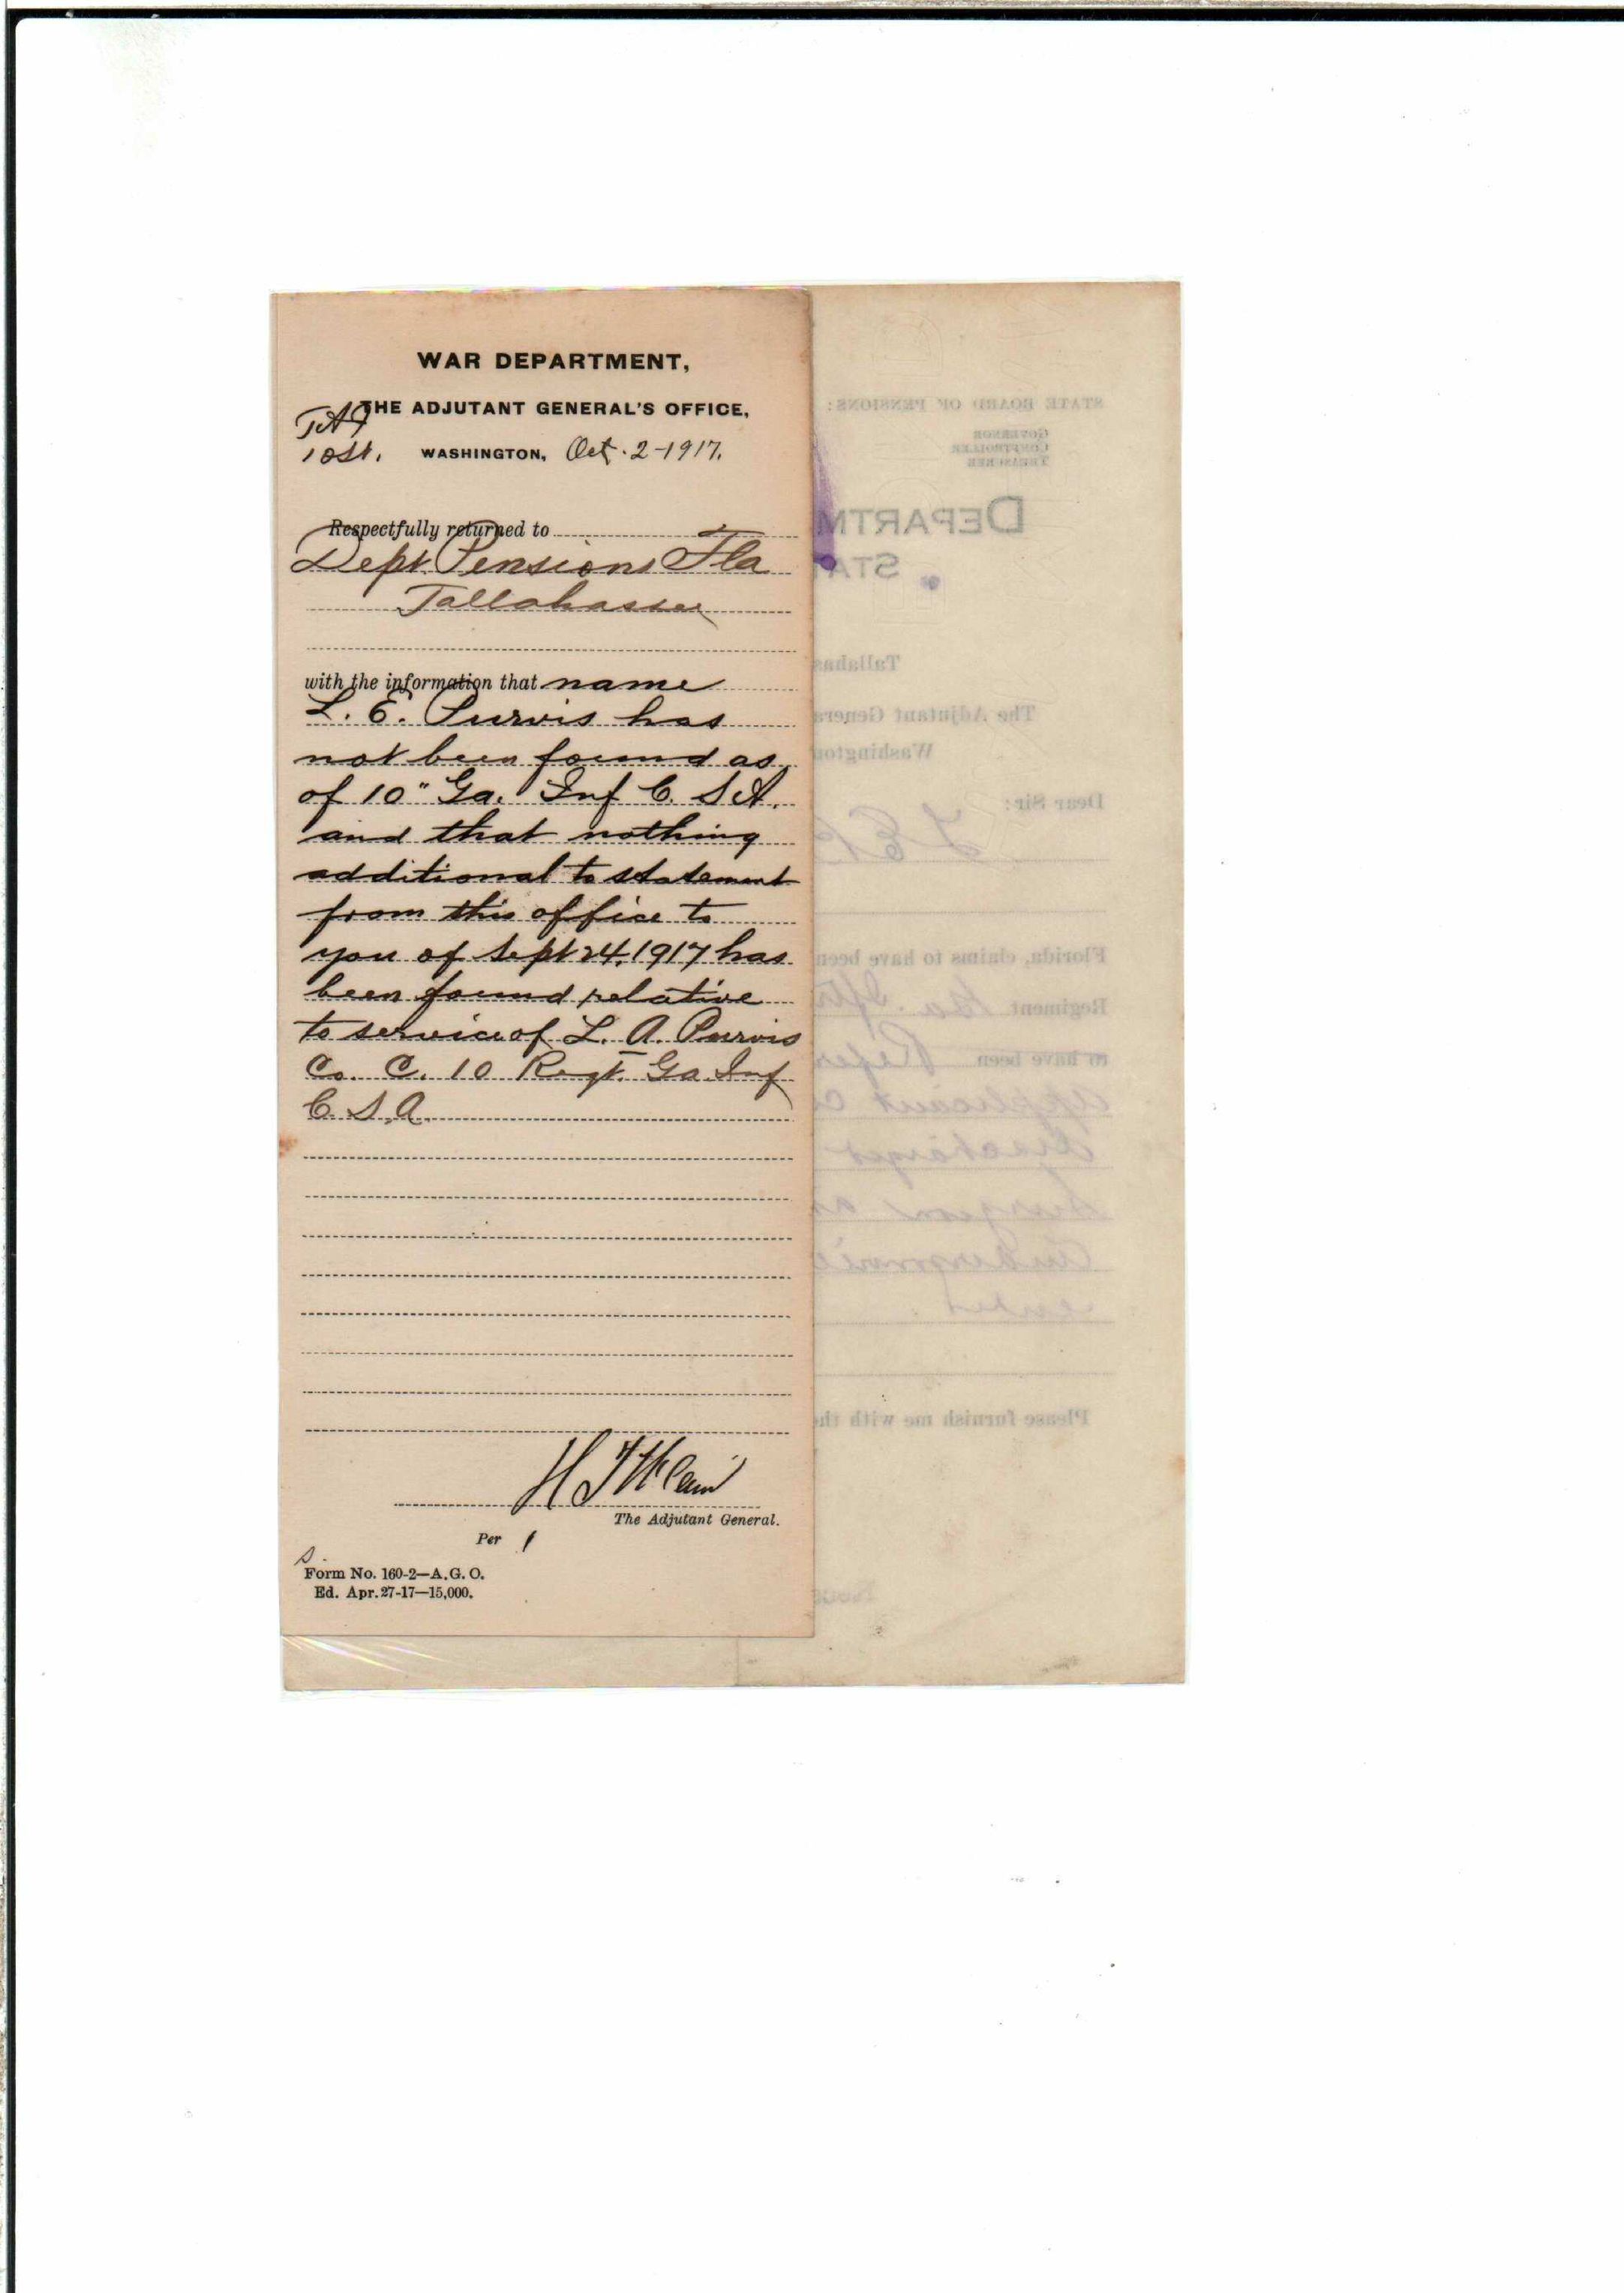 WAR DEPARTMENT,
THE ADJUTANT GENERAL'S OFFICE,
WASHINGTON, Oct. 2-1917.
Respectfully returned to
Dept Pensions Fla
Tallahassee
with the information that name
L. E. Purvis has
not been found as
of 10" Ga. Inf C. S A.
and that nothing
additional to statement
from this office to
you of Sept 24, 1917 has
been found relative
to service of L. A. Purvis
Co. C. 10 Regt. Ga. Inf
C. S. A.
The Adjutant General.
Per
Form No. 160-2—A.G.O.
Ed. Apr. 27-17—15,000.
STATE BOARD OF PENSIONS:
GOVERNOR
COMPTROLLER
TREASURER
DEPARTM
STA
Tallahas
The Adjutant Genera
Washington
Dear Sir:
Florida, claims to have been
Regiment Ga.
to have been
Please furnish me with the